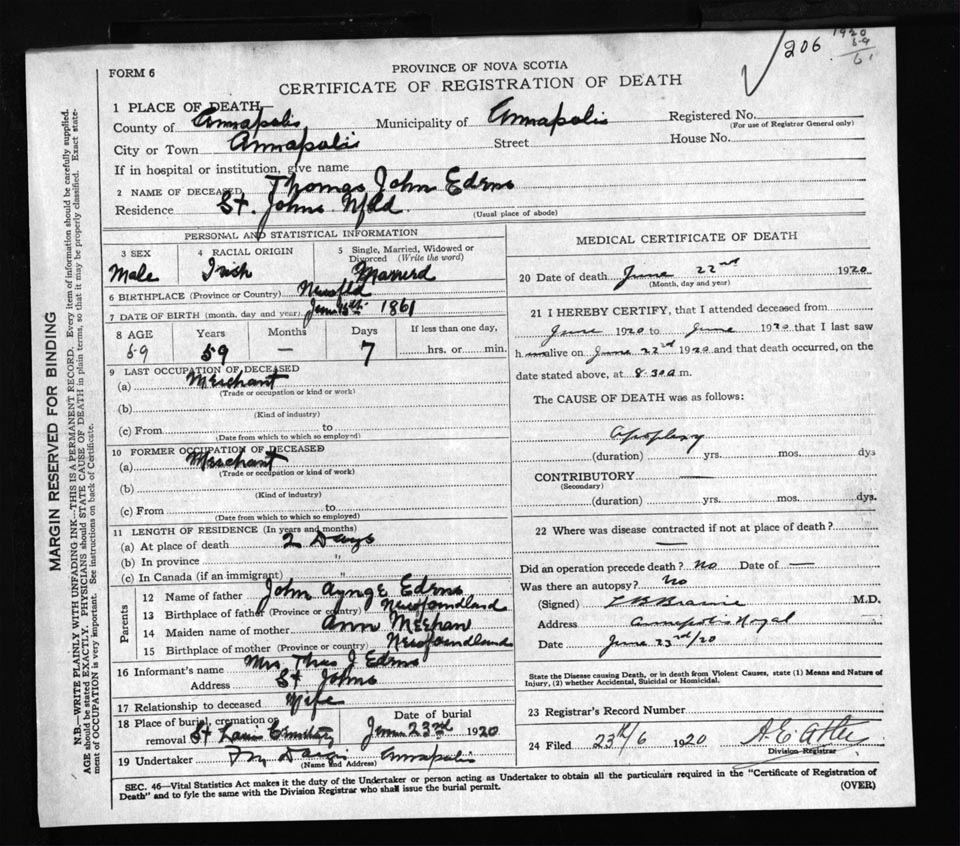 206
1920
59
61
FORM 6
PROVINCE OF NOVA SCOTIA
CERTIFICATE OF REGISTRATION OF DEATH
MARGIN RESERVED FOR BINDING
N.B.—WRITE PLAINLY WITH UNFADING INK—THIS IS A PERMANENT RECORD. Every item of information should be carefully supplied.
AGE should be stated EXACTLY. PHYSICIANS should STATE CAUSE OF DEATH in plain terms, so that it may be properly classified. Exact state-
ment of OCCUPATION is very important. See instructions on back of Certificate.
1 PLACE OF DEATH—
County of Annapolis Municipality of Annapolis Registered No.
(For use of Registrar General only)
City or Town Annapolis Street House No.
If in hospital or institution, give name
2 NAME OF DECEASED Thomas John Edens
Residence St. Johns Nfld
(Usual place of abode)
PERSONAL AND STATISTICAL INFORMATION
3 SEX 4 RACIAL ORIGIN 5 Single, Married, Widowed or
Divorced (Write the word)
Male Irish Married
6 BIRTHPLACE (Province or Country) Newfld
7 DATE OF BIRTH (month, day and year) June 15th 1861
8 AGE Years Months Days If less than one day,
59 59 — 7 hrs. or min.
9 LAST OCCUPATION OF DECEASED
(a) Merchant
(Trade or occupation or kind or work)
(b)
(Kind of industry)
(c) From to
(Date from which to which so employed)
10 FORMER OCCUPATION OF DECEASED
(a) Merchant
(Trade or occupation or kind of work)
(b)
(Kind of industry)
(c) From to
(Date from which to which so employed)
11 LENGTH OF RESIDENCE (In years and months)
(a) At place of death 2 Days
(b) In province "
(c) In Canada (if an immigrant) "
Parents
12 Name of father John Aynge Edens
13 Birthplace of father (Province or country) Newfoundland
14 Maiden name of mother Ann Meehan
15 Birthplace of mother (Province or country) Newfoundland
16 Informant's name Mrs Thos J Edens
Address St Johns
17 Relationship to deceased Wife
18 Place of burial, cremation or
removal St Louis Cemetery
Date of burial
June 23rd 1920
19 Undertaker Annapolis
(Name and Address)
MEDICAL CERTIFICATE OF DEATH
20 Date of death June 22nd 1920
(Month, day and year)
21 I HEREBY CERTIFY, that I attended deceased from
June 1920 to June 1920 that I last saw
h alive on June 22nd 1920 and that death occurred, on the
date stated above, at 8.30 a m.
The CAUSE OF DEATH was as follows:
Apoplexy
(duration) yrs. mos. dys
CONTRIBUTORY —
(Secondary)
(duration) yrs. mos. dys.
22 Where was disease contracted if not at place of death?
—
Did an operation precede death? No Date of —
Was there an autopsy? No
(Signed) M.D.
Address Annapolis Royal
Date June 23rd/20
State the Disease causing Death, or in death from Violent Causes, state (1) Means and Nature of
Injury, (2) whether Accidental, Suicidal or Homicidal.
23 Registrar's Record Number
24 Filed 23rd/6 1920
Division Registrar
SEC. 46—Vital Statistics Act makes it the duty of the Undertaker or person acting as Undertaker to obtain all the particulars required in the "Certificate of Registration of
Death" and to fyle the same with the Division Registrar who shall issue the burial permit.
(OVER)